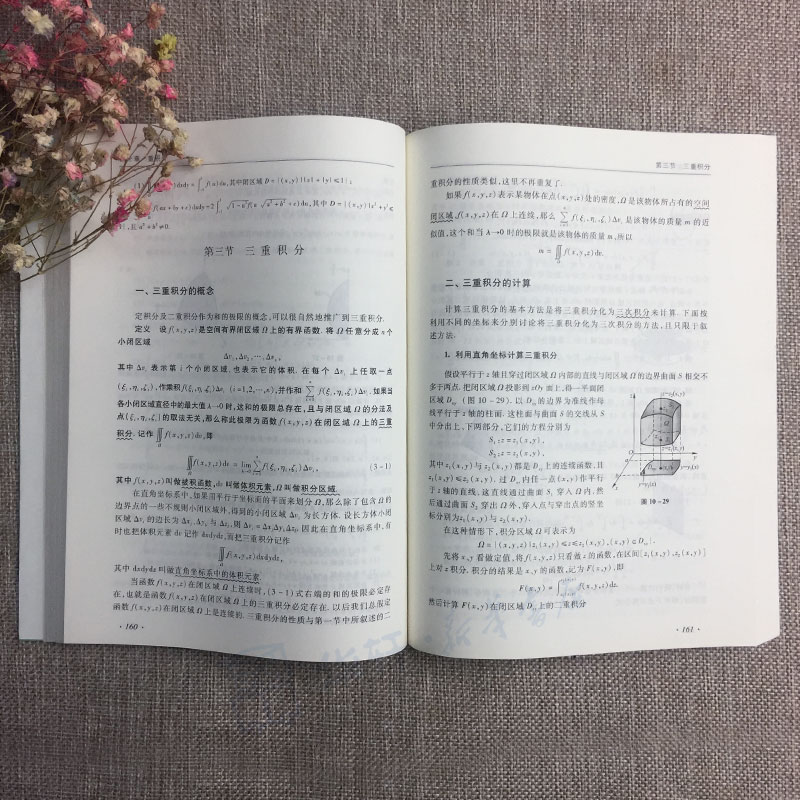 (1) ∬ f( )dxdy = ∫ f(u)du, 其中闭区域 D = {(x,y) | |x|+|y| ≤ 1};
f(ax+by+c)dxdy = 2∫ √(1-u²) f(u √(a²+b²) + c)du, 其中 D = {(x,y) | x²+y² ≤
1}, 且 a²+b² ≠ 0.
第三节 三重积分
一、三重积分的概念
定积分及二重积分作为和的极限的概念,可以很自然地推广到三重积分.
定义 设 f(x,y,z) 是空间有界闭区域 Ω 上的有界函数. 将 Ω 任意分成 n 个
小闭区域
Δv₁, Δv₂, ⋯, Δvₙ,
其中 Δvᵢ 表示第 i 个小闭区域,也表示它的体积. 在每个 Δvᵢ 上任取一点
(ξᵢ,ηᵢ,ζᵢ), 作乘积 f(ξᵢ,ηᵢ,ζᵢ)Δvᵢ (i=1,2,⋯,n), 并作和 ∑ f(ξᵢ,ηᵢ,ζᵢ)Δvᵢ. 如果当
各小闭区域直径中的最大值 λ→0 时,这和的极限总存在,且与闭区域 Ω 的分法及
点(ξᵢ,ηᵢ,ζᵢ)的取法无关,那么称此极限为函数 f(x,y,z) 在闭区域 Ω 上的三重
积分. 记作 ∭ f(x,y,z)dv, 即
∭ f(x,y,z)dv = lim ∑ f(ξᵢ,ηᵢ,ζᵢ)Δvᵢ, (3-1)
其中 f(x,y,z) 叫做被积函数, dv 叫做体积元素, Ω 叫做积分区域.
在直角坐标系中,如果用平行于坐标面的平面来划分 Ω,那么除了包含 Ω 的
边界点的一些不规则小闭区域外,得到的小闭区域 Δvᵢ 为长方体. 设长方体小闭
区域 Δvᵢ 的边长为 Δxⱼ, Δyₖ 与 Δzₗ, 则 Δvᵢ = ΔxⱼΔyₖΔzₗ. 因此在直角坐标系中,有
时也把体积元素 dv 记作 dxdydz, 而把三重积分记作
∭ f(x,y,z)dxdydz,
其中 dxdydz 叫做直角坐标系中的体积元素.
当函数 f(x,y,z) 在闭区域 Ω 上连续时, (3-1) 式右端的和的极限必定存
在,也就是函数 f(x,y,z) 在闭区域 Ω 上的三重积分必定存在. 以后我们总假定
函数 f(x,y,z) 在闭区域 Ω 上是连续的. 三重积分的性质与第一节中所叙述的二
· 160 ·
第三节 三重积分
重积分的性质类似,这里不再重复了.
如果 f(x,y,z) 表示某物体在点(x,y,z)处的密度, Ω 是该物体所占有的空间
闭区域, f(x,y,z) 在 Ω 上连续,那么 ∑ f(ξᵢ,ηᵢ,ζᵢ)Δvᵢ 是该物体的质量 m 的近
似值,这个和当 λ→0 时的极限就是该物体的质量 m,所以
m = ∭ f(x,y,z)dv.
二、三重积分的计算
计算三重积分的基本方法是将三重积分化为三次积分来计算. 下面按
利用不同的坐标来分别讨论将三重积分化为三次积分的方法,且只限于叙
述方法.
1. 利用直角坐标计算三重积分
假设平行于 z 轴且穿过闭区域 Ω 内部的直线与闭区域 Ω 的边界曲面 S 相交不
多于两点. 把闭区域 Ω 投影到 xOy 面上,得一平面闭
区域 Dxy (图 10-29). 以 Dxy 的边界为准线作母
线平行于 z 轴的柱面. 这柱面与曲面 S 的交线从 S
中分出上、下两部分,它们的方程分别为
S₁: z = z₁(x,y),
S₂: z = z₂(x,y),
其中 z₁(x,y) 与 z₂(x,y) 都是 Dxy 上的连续函数,且
z₁(x,y) ≤ z₂(x,y). 过 Dxy 内任一点(x,y)作平行
于 z 轴的直线,这直线通过曲面 S₁ 穿入 Ω 内,然
后通过曲面 S₂ 穿出 Ω 外,穿入点与穿出点的竖坐
标分别为 z₁(x,y) 与 z₂(x,y).
图 10-29
在这种情形下,积分区域 Ω 可表示为
Ω = {(x,y,z) | z₁(x,y) ≤ z ≤ z₂(x,y), (x,y) ∈ Dxy}.
先将 x,y 看做定值,将 f(x,y,z) 只看做 z 的函数,在区间[z₁(x,y), z₂(x,y)]
上对 z 积分. 积分的结果是 x,y 的函数,记为 F(x,y), 即
F(x,y) = ∫ f(x,y,z)dz.
然后计算 F(x,y) 在闭区域 Dxy 上的二重积分
· 161 ·